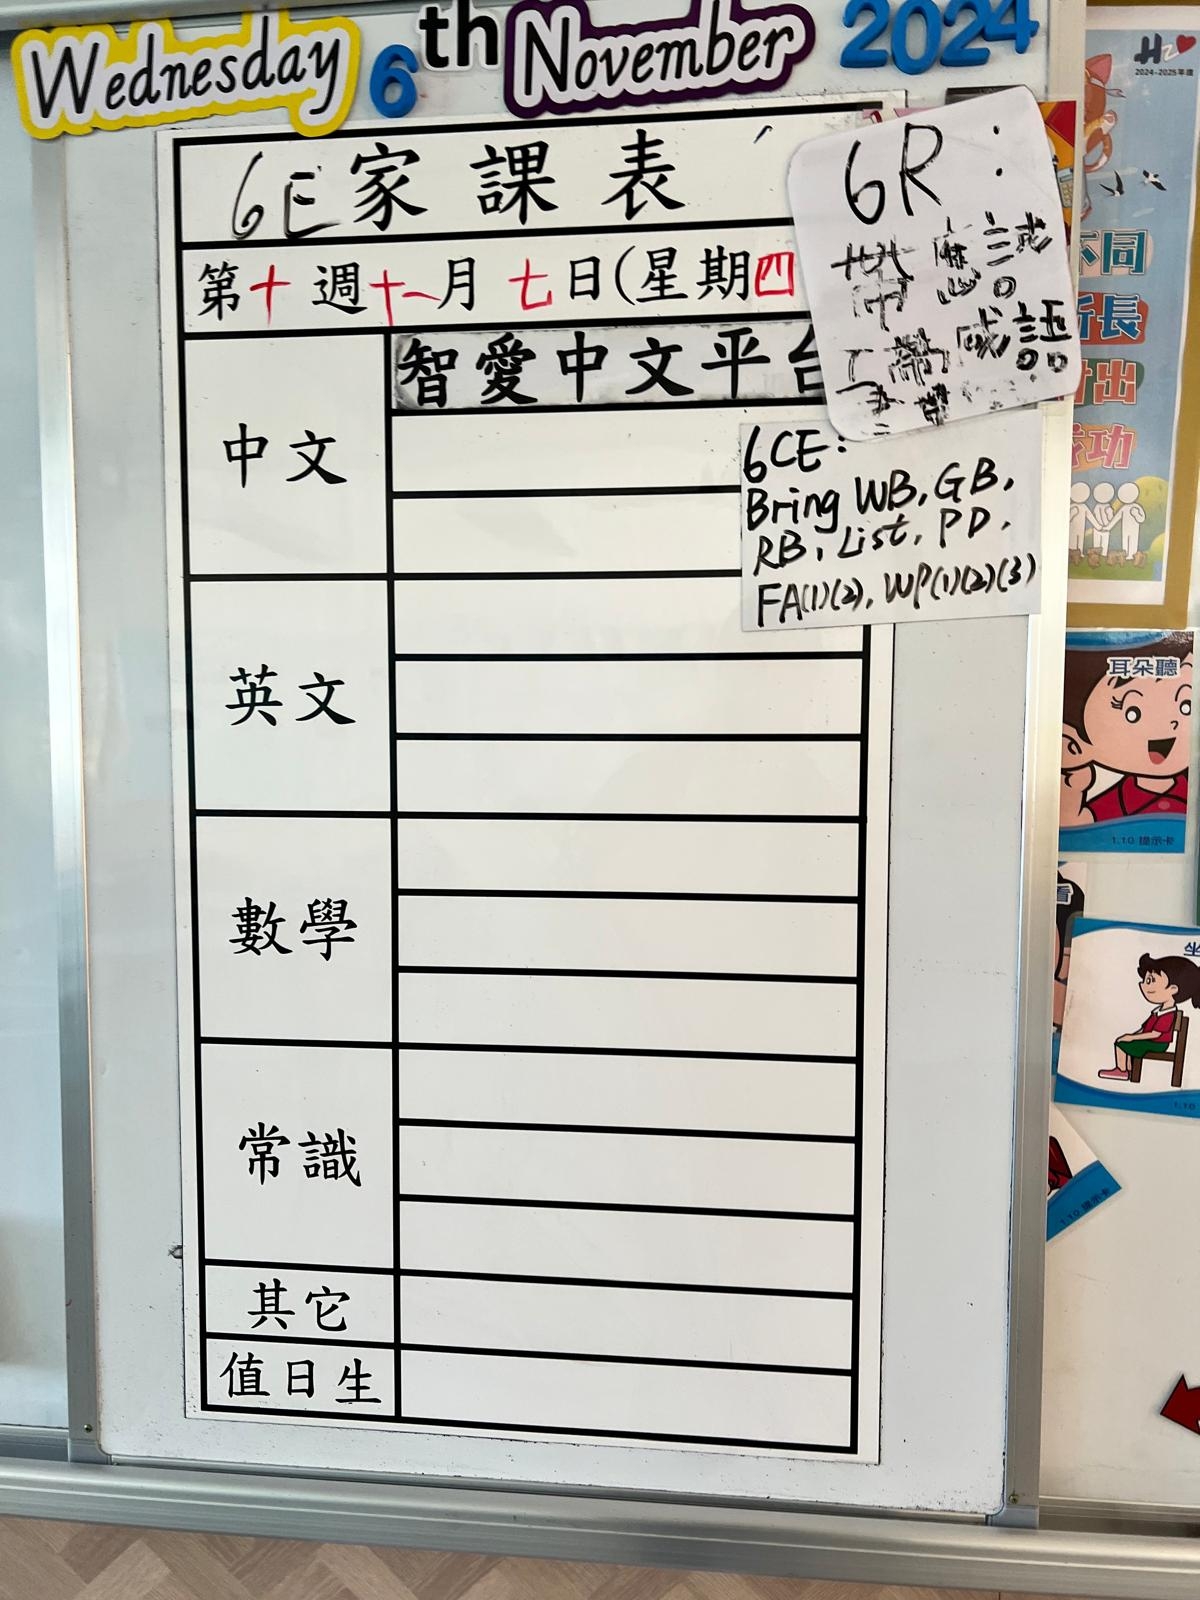 Wednesday 6th November 2024
6E家課表
第十週十一月七日(星期四
中文
智愛中文平台
英文
數學
常識
其它
值日生
6R:
應試
成語
6CE:
Bring WB, GB,
RB, List, PD,
FA(1)(2), WP(1)(2)(3)
2024-2025年度
不同
所長
付出
成功
耳朵聽
1.10 提示卡
看
坐
1.10
1.10 提示卡